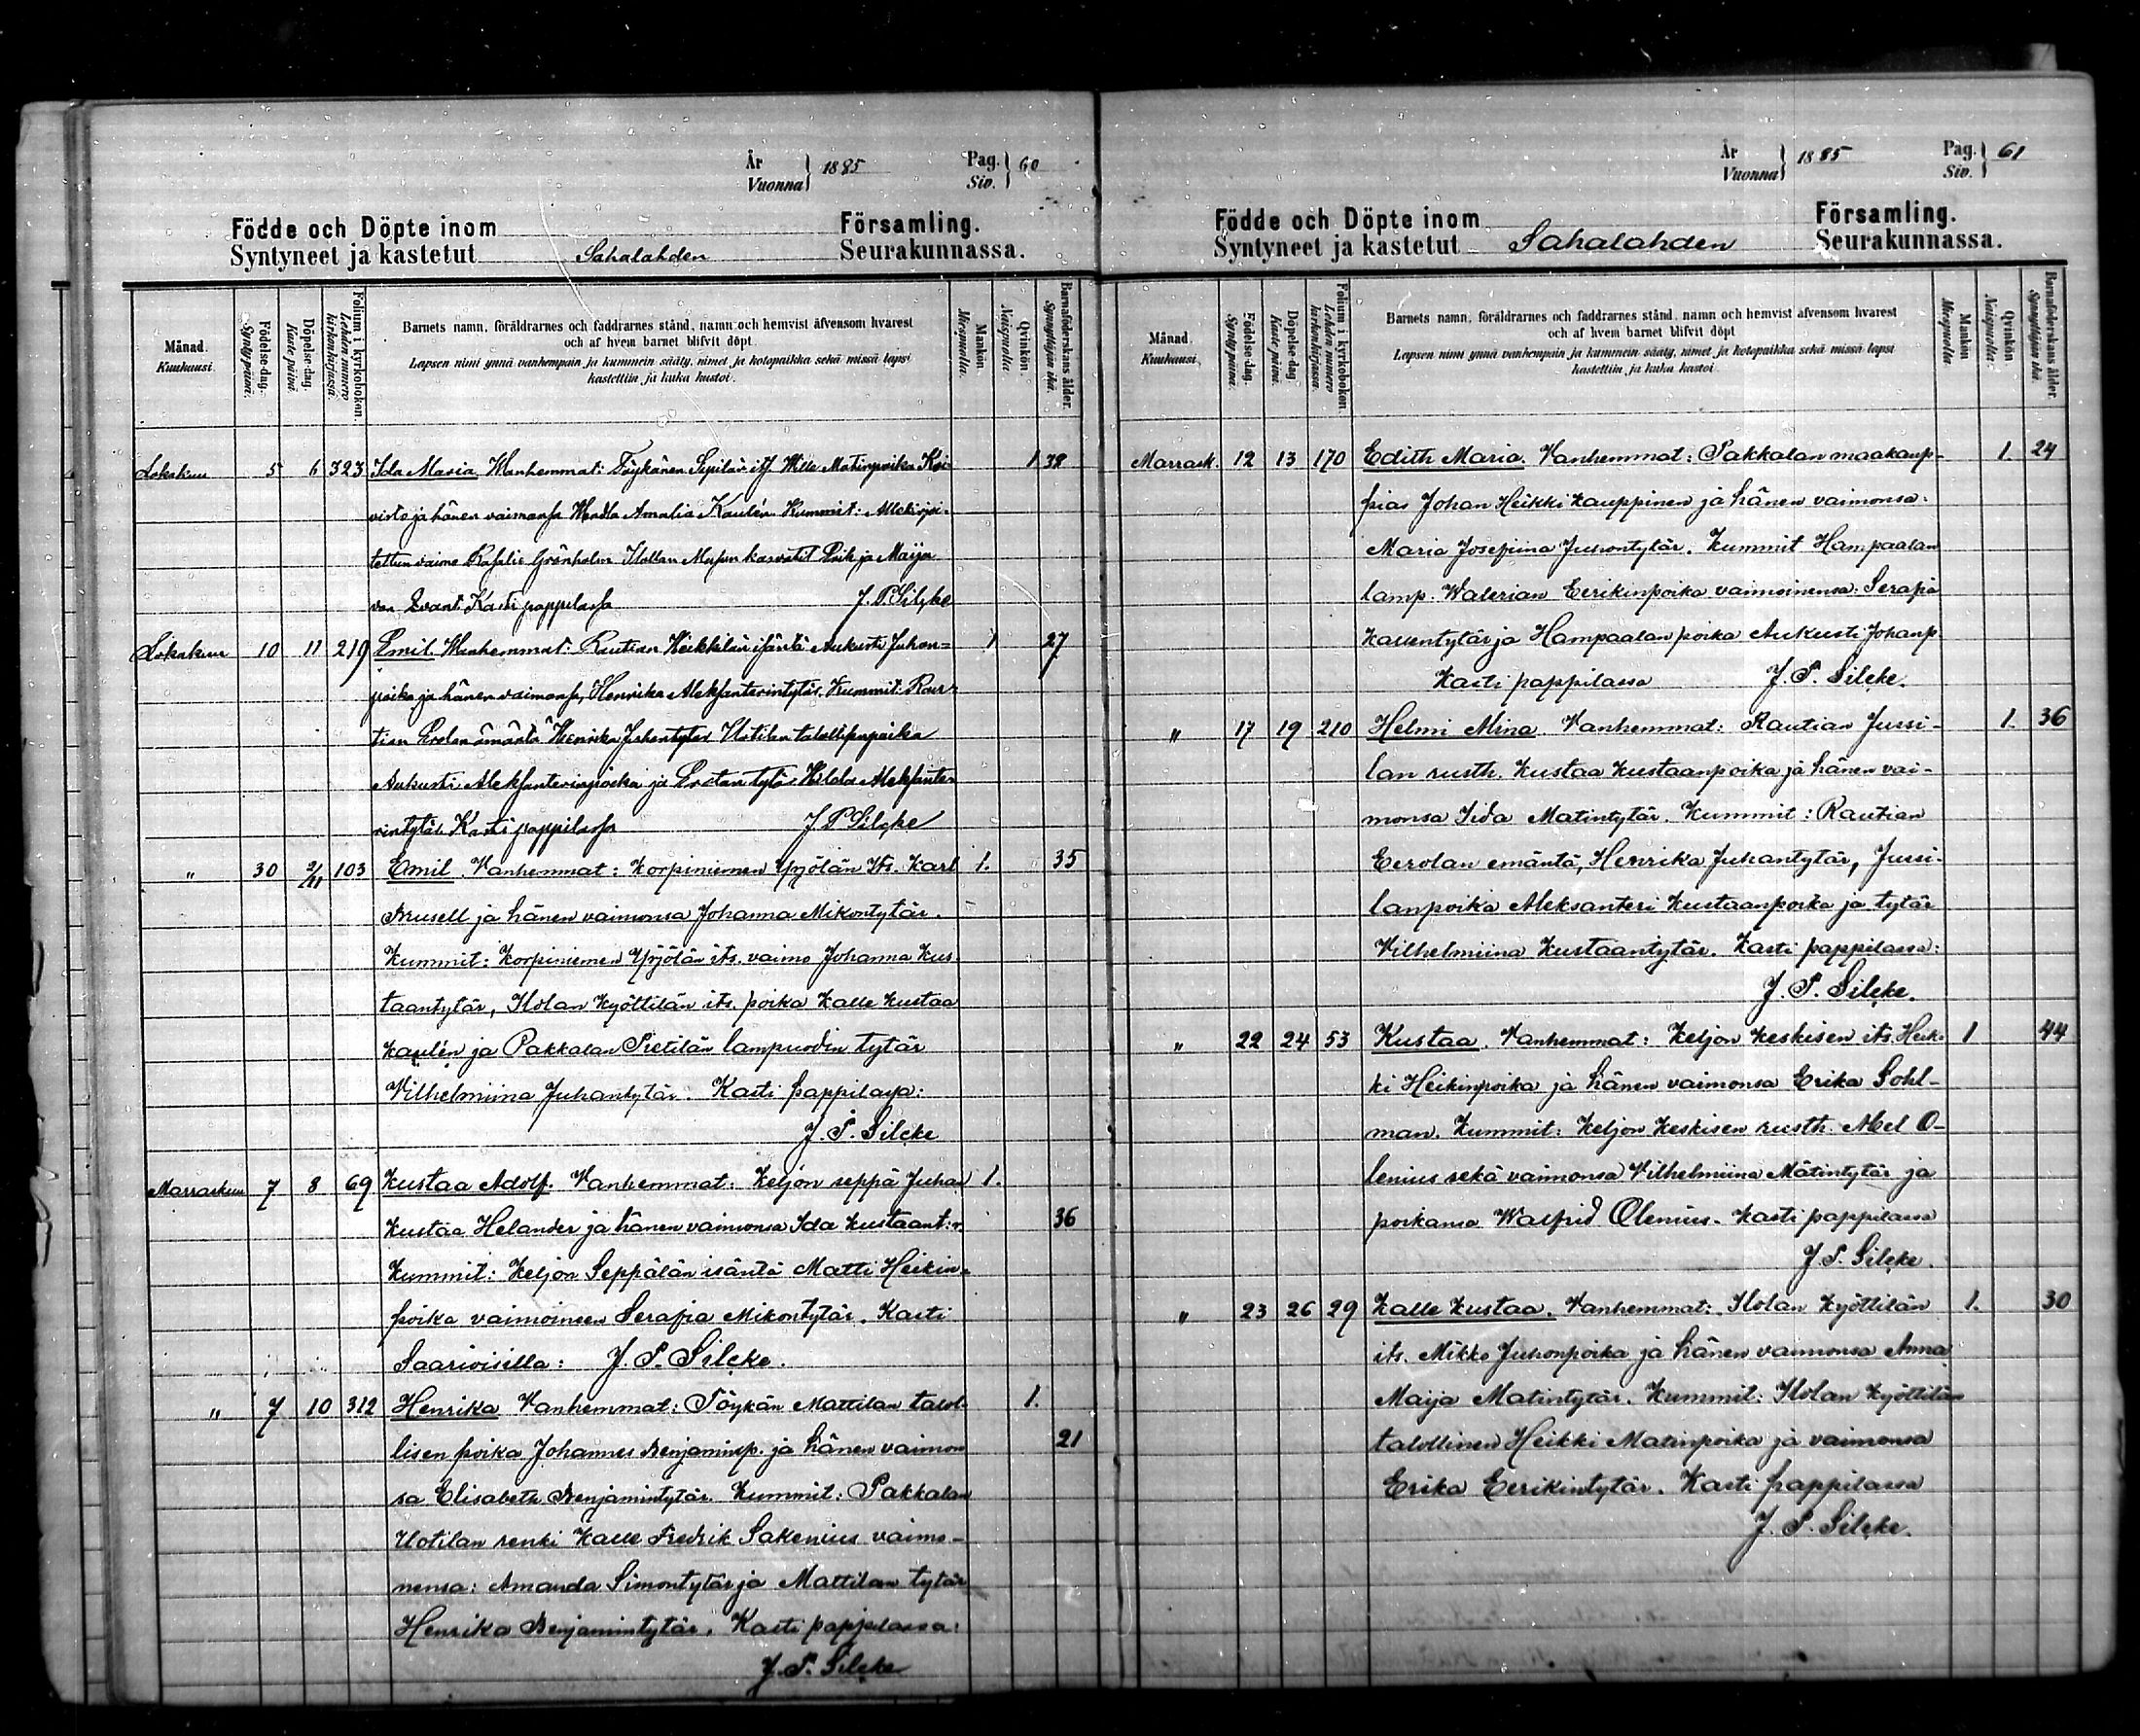 År Vuonna } 1885 Pag. Siv. } 60
Födde och Döpte inom Församling.
Syntyneet ja kastetut Sahalahden Seurakunnassa.
Månad. Kuukausi.
Födelse-dag. Syntypäivä.
Döpelse-dag. Kastepäivä.
Folium i kyrkoboken. Lehden numero kirkonkirjassa.
Barnets namn, föräldrarnes och faddrarnes stånd, namn och hemvist äfvensom hvarest
och af hvem barnet blifvit döpt.
Lapsen nimi ynnä vanhempain ja kummein sääty, nimet ja kotopaikka sekä missä lapsi
kastettiin ja kuka kastoi.
Mankön. Miespuolia.
Qvinkön. Naispuolia.
Barnaföderskans ålder. Synnyttäjän ikä.
Lokakuu 5 6 323 Ida Maria Wanhemmat: Töykänen Sepilän itf Wille Matinpoika Koi- 1 38
visto ja hänen vaimonsa Amalia Kaulén Kummit:
tettun vaimo Grönholm Ilollan Maija
Kasti pappilassa J. P. Silcke
Lokakuu 10 11 219 Emil Wanhemmat: Rautian Heikkilän isäntä Aukusti Juhon= 1 27
poika ja hänen vaimonsa, Henrika Aleksanterintytär. Kummit: Rau-
tian Erolan ämäntä Henrika Juhontytär Uotilan talollisenpoika
Aukusti Aleksanterinpoika ja Erolan tytö Hilda Aleksante-
rintytär. Kasti pappilassa J. P. Silcke
„ 30 2/11 103 Emil. Vanhemmat: Korpiniemen Yrjölän its. Karl 1. 35
Brusell ja hänen vaimonsa Johanna Mikontytär.
Kummit: Korpiniemen Yrjölän its. vaimo Johanna Kus-
taantytär, Ilolan Kyöttilän its. poika Kalle Kustaa
Kaulén ja Pakkalan Pietilän lampuodin tytär
Vilhelmiina Juhantytär. Kasti pappilassa:
J. P. Silcke
Marraskuu 7 8 69 Kustaa Adolf. Vanhemmat: Keljon seppä Juhan 1.
Kustaa Helander ja hänen vaimonsa Ida Kustaant:r. 36
Kummit: Keljon Seppälän isäntä Matti Heikin-
poika vaimoineen Serafia Mikontytär. Kasti
Saarioisilla: J. P. Silcke.
„ 7 10 312 Henrika Vanhemmat: Töykän Mattilan talol- 1.
lisen poika Johannes Benjaminp. ja hänen vaimon 21
sa Elisabeth Benjamintytär. Kummit: Pakkalan
Uotilan renki Kalle Fredrik Sakenius vaimo-
nensa: Amanda Simontytär ja Mattilan tytär
Henrika Benjamintytär. Kasti pappilassa:
J. P. Silcke
År Vuonna } 1885 Pag. Siv. } 61
Födde och Döpte inom Församling.
Syntyneet ja kastetut Sahalahden Seurakunnassa.
Månad. Kuukausi.
Födelse-dag. Syntypäivä.
Döpelse-dag. Kastepäivä.
Folium i kyrkoboken. Lehden numero kirkonkirjassa.
Barnets namn, föräldrarnes och faddrarnes stånd, namn och hemvist äfvensom hvarest
och af hvem barnet blifvit döpt
Lapsen nimi ynnä vanhempain ja kummein sääty, nimet ja kotopaikka sekä missä lapsi
kastettiin ja kuka kastoi.
Mankön. Miespuolia.
Qvinkön. Naispuolia.
Barnaföderskans ålder. Synnyttäjän ikä.
Marrask. 12 13 170 Edith Maria. Vanhemmat: Pakkalan maakaup- 1. 24
pias Johan Heikki Kauppinen ja hänen vaimonsa:
Maria Josefiina Juhontytär. Kummit Hampaalan
lamp. Walerian Eerikinpoika vaimoinensa: Serafia
Kallentytär ja Hampaalan poika Aukusti Johanp
Kasti pappilassa J. P. Silcke.
„ 17 19 210 Helmi Mina. Vanhemmat: Rautian Jussi- 1. 36
lan rusth. Kustaa Kustaanpoika ja hänen vai-
monsa Iida Matintytär. Kummit: Rautian
Eerolan emäntä, Henrika Juhantytär, Jussi-
lanpoika Aleksanteri Kustaanpoika ja tytär
Vilhelmiina Kustaantytär. Kasti pappilassa:
J. P. Silcke.
„ 22 24 53 Kustaa. Vanhemmat: Keljon Keskisen its. Heik- 1 44
ki Heikinpoika ja hänen vaimonsa Erika Sohl-
man. Kummit: Keljon Keskisen rusth. Abel O-
lenius sekä vaimonsa Vilhelmiina Matintytär ja
poikansa Walfrid Olenius. Kasti pappilassa
J. P. Silcke.
„ 23 26 29 Kalle Kustaa. Vanhemmat: Ilolan Kyöttilän 1. 30
its. Mikko Juhonpoika ja hänen vaimonsa Anna
Maija Matintytär. Kummit: Ilolan Kyöttilän
talollinen Heikki Matinpoika ja vaimonsa
Erika Eerikintytär. Kasti pappilassa
J. P. Silcke.